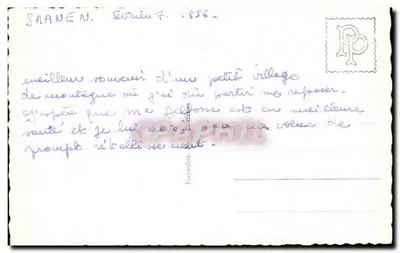 SAANEN. février 7. 1956.
meilleur souvenir d'un petit village
de montagne où j'ai dû partir me reposer.
J'espère que me est en meilleure
santé et je lui mes voeux de
prompt rétablissement.